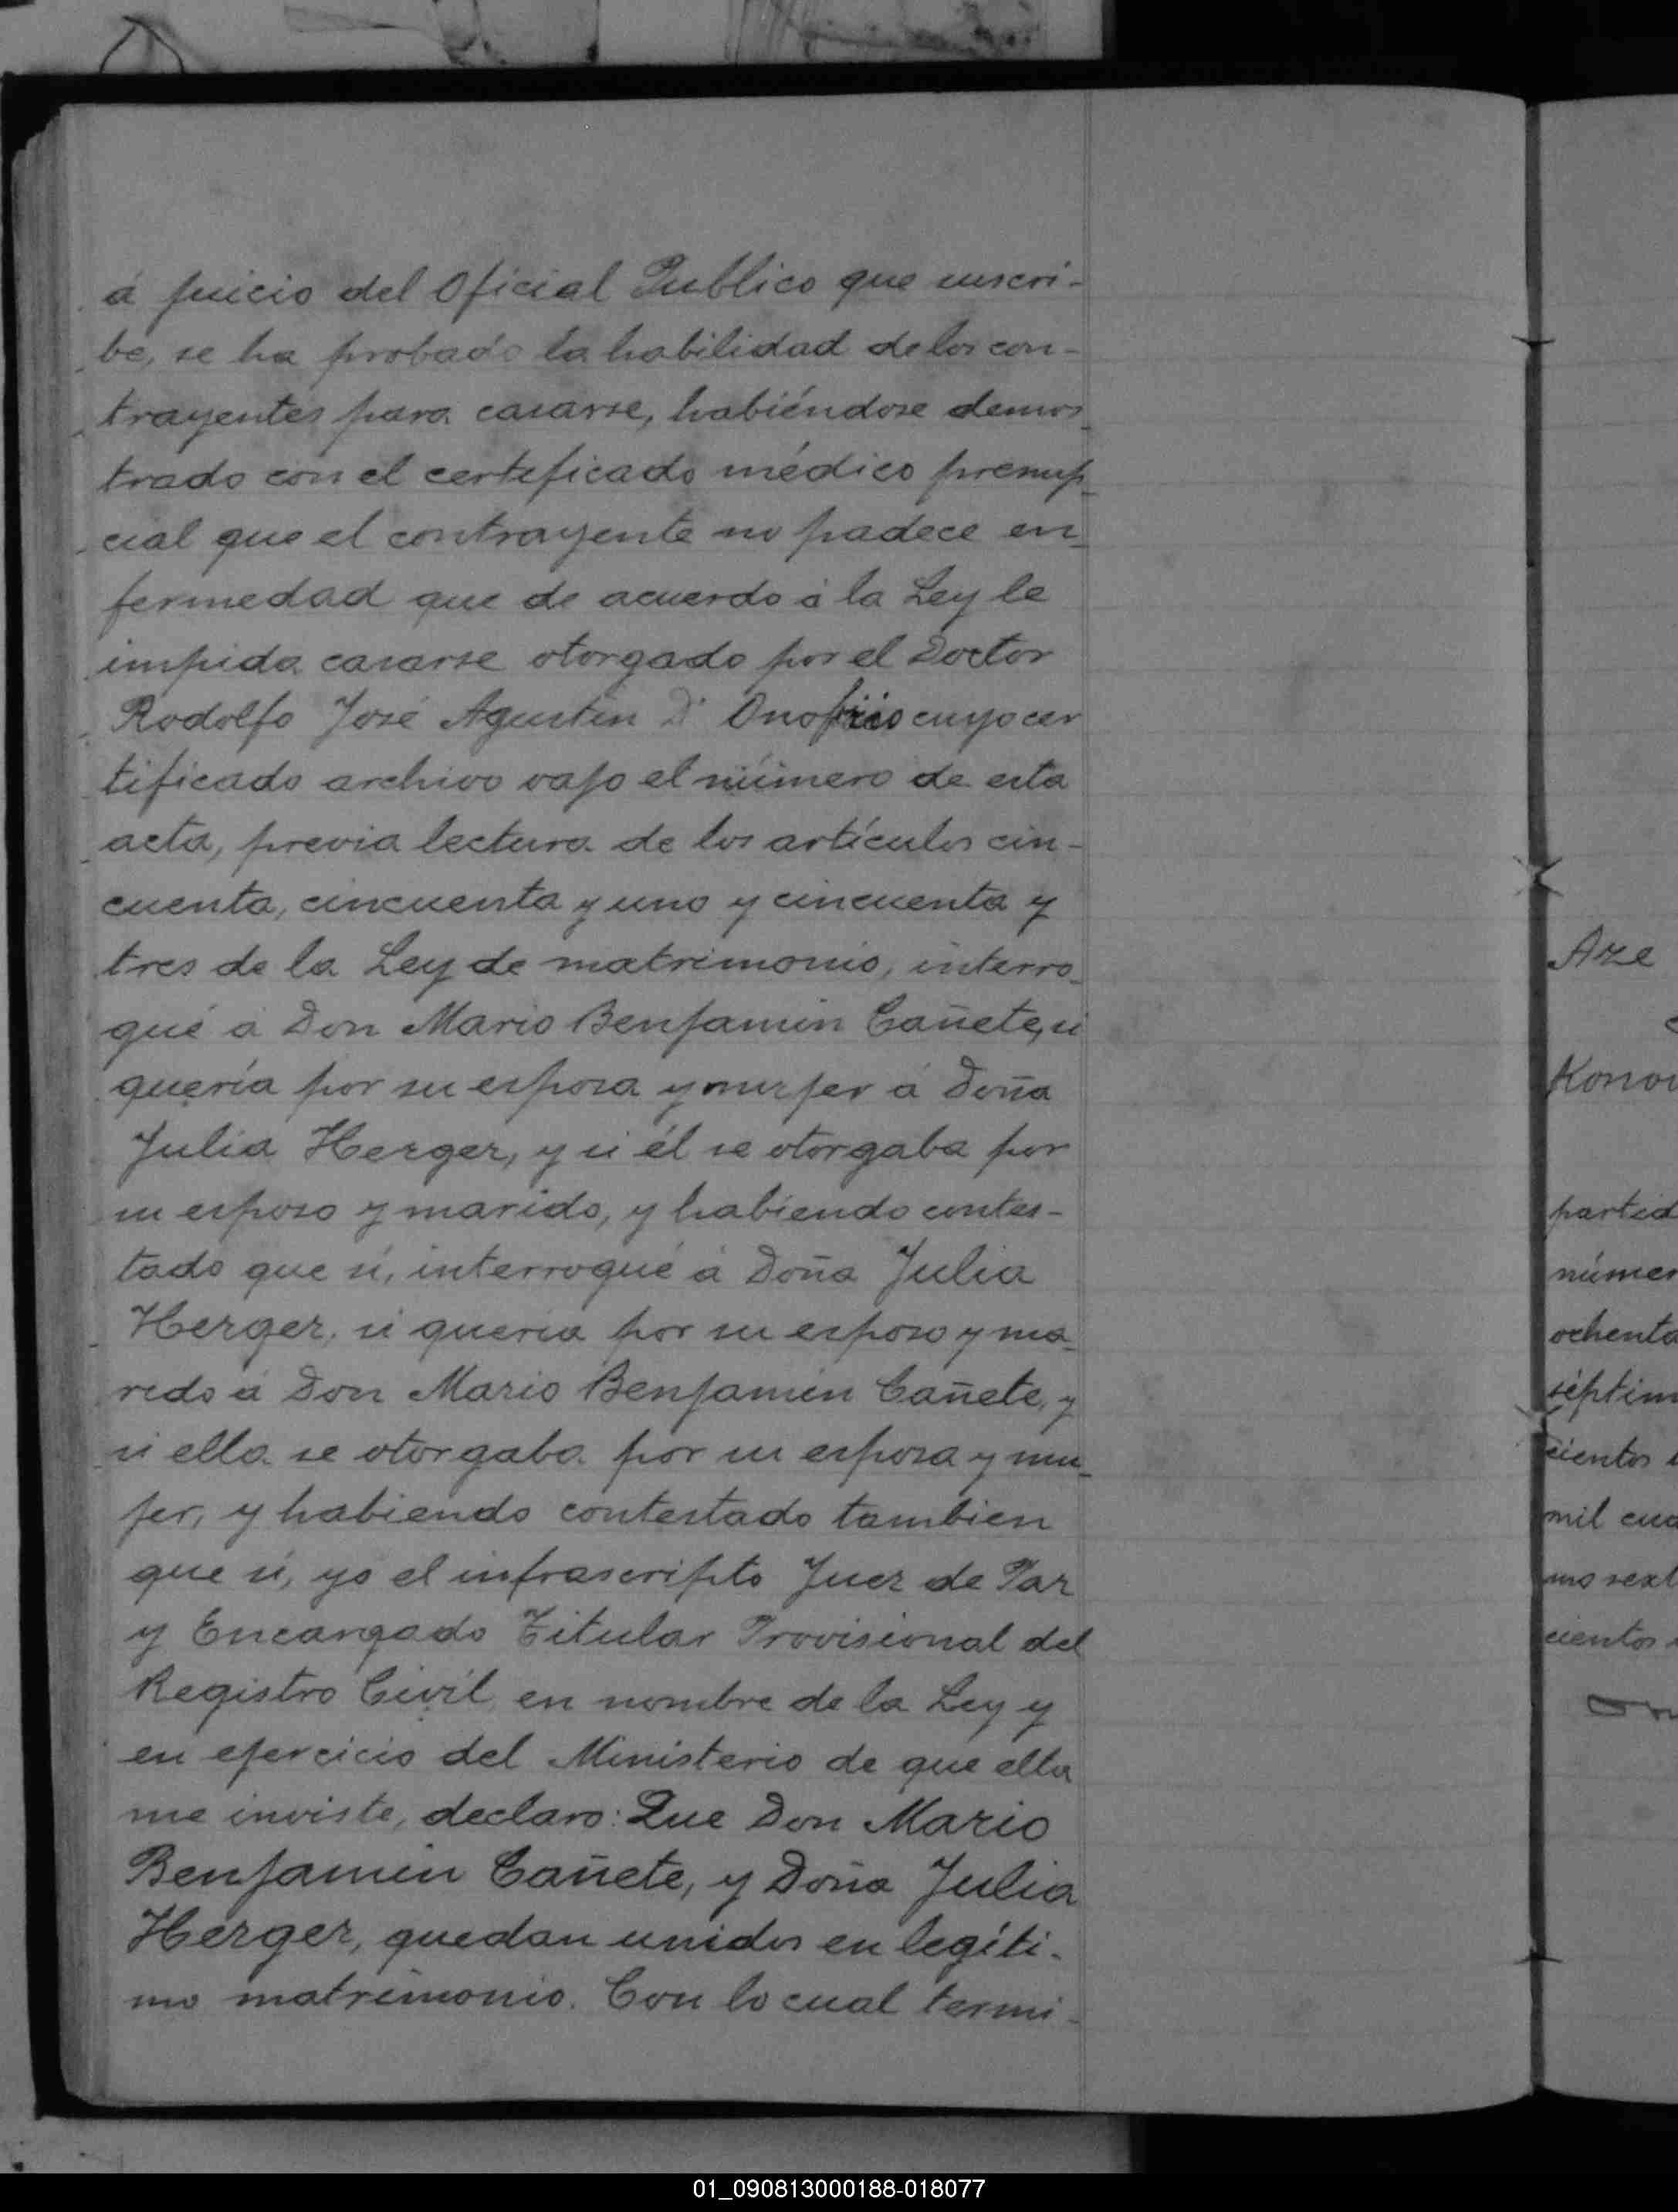 á juicio del Oficial Publico que suscri-
be, se ha probado la habilidad de los con-
trayentes para casarse, habiéndose demos_
trado con el certificado médico prenup_
cial que el contrayente no padece en_
fermedad que de acuerdo á la Ley le
impida casarse otorgado por el Doctor
Rodolfo José Agustin D' Onofrio cuyo cer
tificado archivo vajo el número de esta
acta, previa lectura de los artículos cin-
cuenta, cincuenta y uno y cincuenta y
tres de la Ley de matrimonio, interro_
gué á Don Mario Benjamin Cañete, si
quería por su esposa y mujer á Doña
Julia Herger, y si él se otorgaba por
su esposo y marido, y habiendo contes-
tado que sí, interrogué á Doña Julia
Herger, si quería por su esposo y ma_
rido á Don Mario Benjamin Cañete, y
si ella se otorgaba por su esposa y mu_
jer, y habiendo contestado tambien
que sí, yo el infrascripto Juez de Paz
y Encargado Titular Provisional del
Registro Civil, en nombre de la Ley y
en ejercicio del Ministerio de que ella
me inviste, declaro: Que Don Mario
Benjamin Cañete, y Doña Julia
Herger, quedan unidos en legíti-
mo matrimonio. Con lo cual termi_
Aze
Konov
partid
númer
ochenta
séptim
cientos
mil cua
mo sext
cientos
01_090813000188-018077